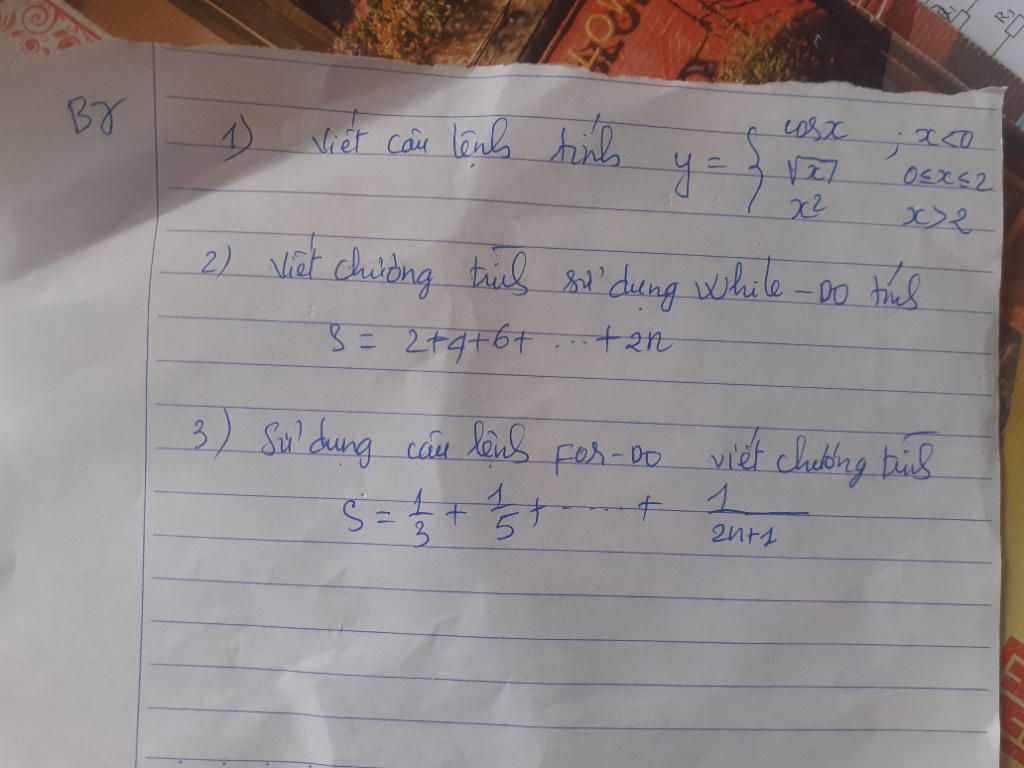 BT
1) Viết câu lệnh tính y = { cosx ; x<0
√x 0≤x≤2
x² x>2
2) Viết chương trình sử dụng While-Do tính
S = 2+4+6+ ... + 2n
3) Sử dụng câu lệnh For-Do viết chương trình
S = 1/3 + 1/5 + ...... + 1/(2n+1)